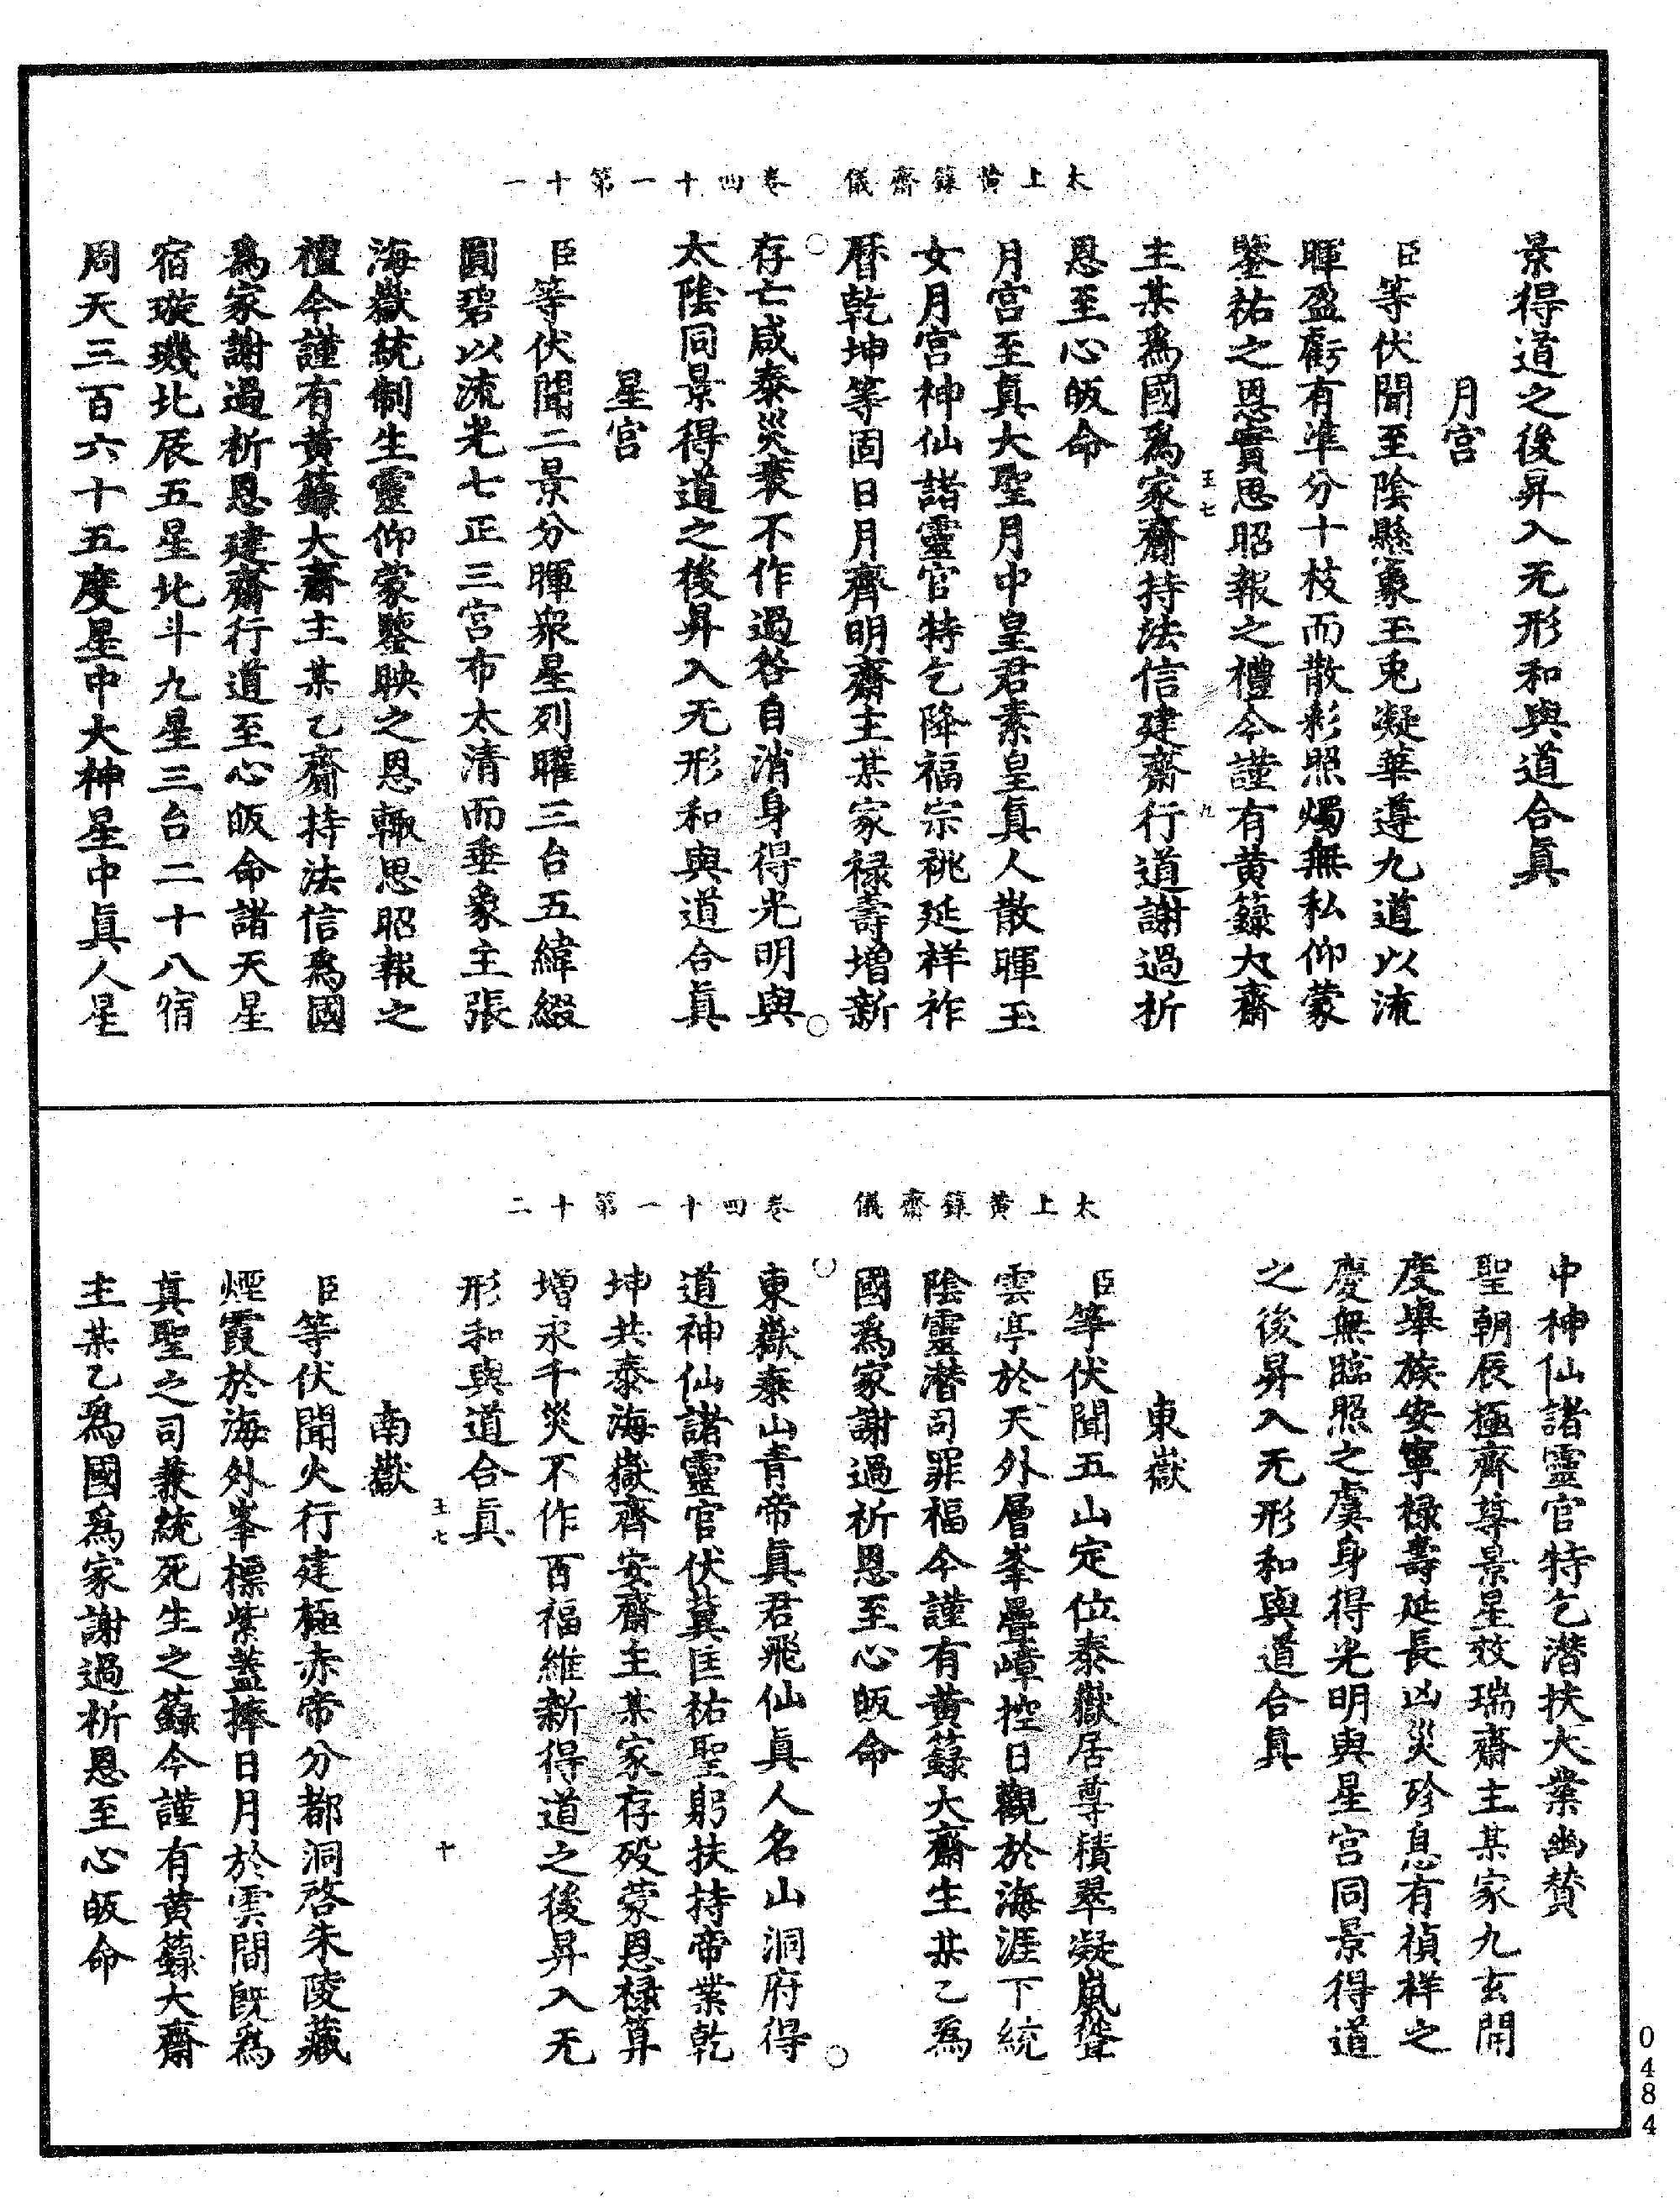 太上黃籙齋儀　卷四十一第十一
景得道之後昇入无形和與道合真
月宮
臣等伏聞至陰縣象玉兎凝華遵九道以流
暉盈虧有準分十枝而散彩照燭無私仰蒙
鑒祐之恩實思昭報之禮今謹有黃籙大齋
主某爲國爲家齋持法信建齋行道謝過祈
恩至心皈命
月宮至真大聖月中皇君素皇真人散暉玉
女月宮神仙諸靈官特乞降福宗祧延祥祚
曆乾坤等固日月齊明齋主某家祿壽增新
存亡咸泰災衰不作過咎自消身得光明與
太陰同景得道之後昇入无形和與道合真
星宮
臣等伏聞二景分暉衆星列曜三台五緯綴
圓碧以流光七正三宮布太清而垂象主張
海嶽統制生靈仰蒙鑒映之恩輒思昭報之
禮今謹有黃籙大齋主某乙齋持法信爲國
爲家謝過祈恩建齋行道至心皈命諸天星
宿璇璣北辰五星北斗九星三台二十八宿
周天三百六十五度星中大神星中真人星
王七
九
太上黃籙齋儀　卷四十一第十二
中神仙諸靈官特乞潛扶大業幽贊
聖朝辰極齊尊景星效瑞齋主某家九玄開
度舉族安寧祿壽延長凶災殄息有禎祥之
慶無臨照之虞身得光明與星宮同景得道
之後昇入无形和與道合真
東嶽
臣等伏聞五山定位泰嶽居尊積翠凝嵐聳
雲亭於天外層峯疊嶂控日觀於海涯下統
陰靈潛司罪福今謹有黃籙大齋生某乙爲
國爲家謝過祈恩至心皈命
東嶽泰山青帝真君飛仙真人名山洞府得
道神仙諸靈官伏冀匡祐聖躬扶持帝業乾
坤共泰海嶽齊安齋主某家存歿蒙恩祿算
增永千災不作百福維新得道之後昇入无
形和與道合真
王七
十
南嶽
臣等伏聞火行建極赤帝分都洞啓朱陵藏
煙霞於海外峯標紫蓋捧日月於雲間旣爲
真聖之司兼統死生之籙今謹有黃籙大齋
主某乙爲國爲家謝過祈恩至心皈命
0484